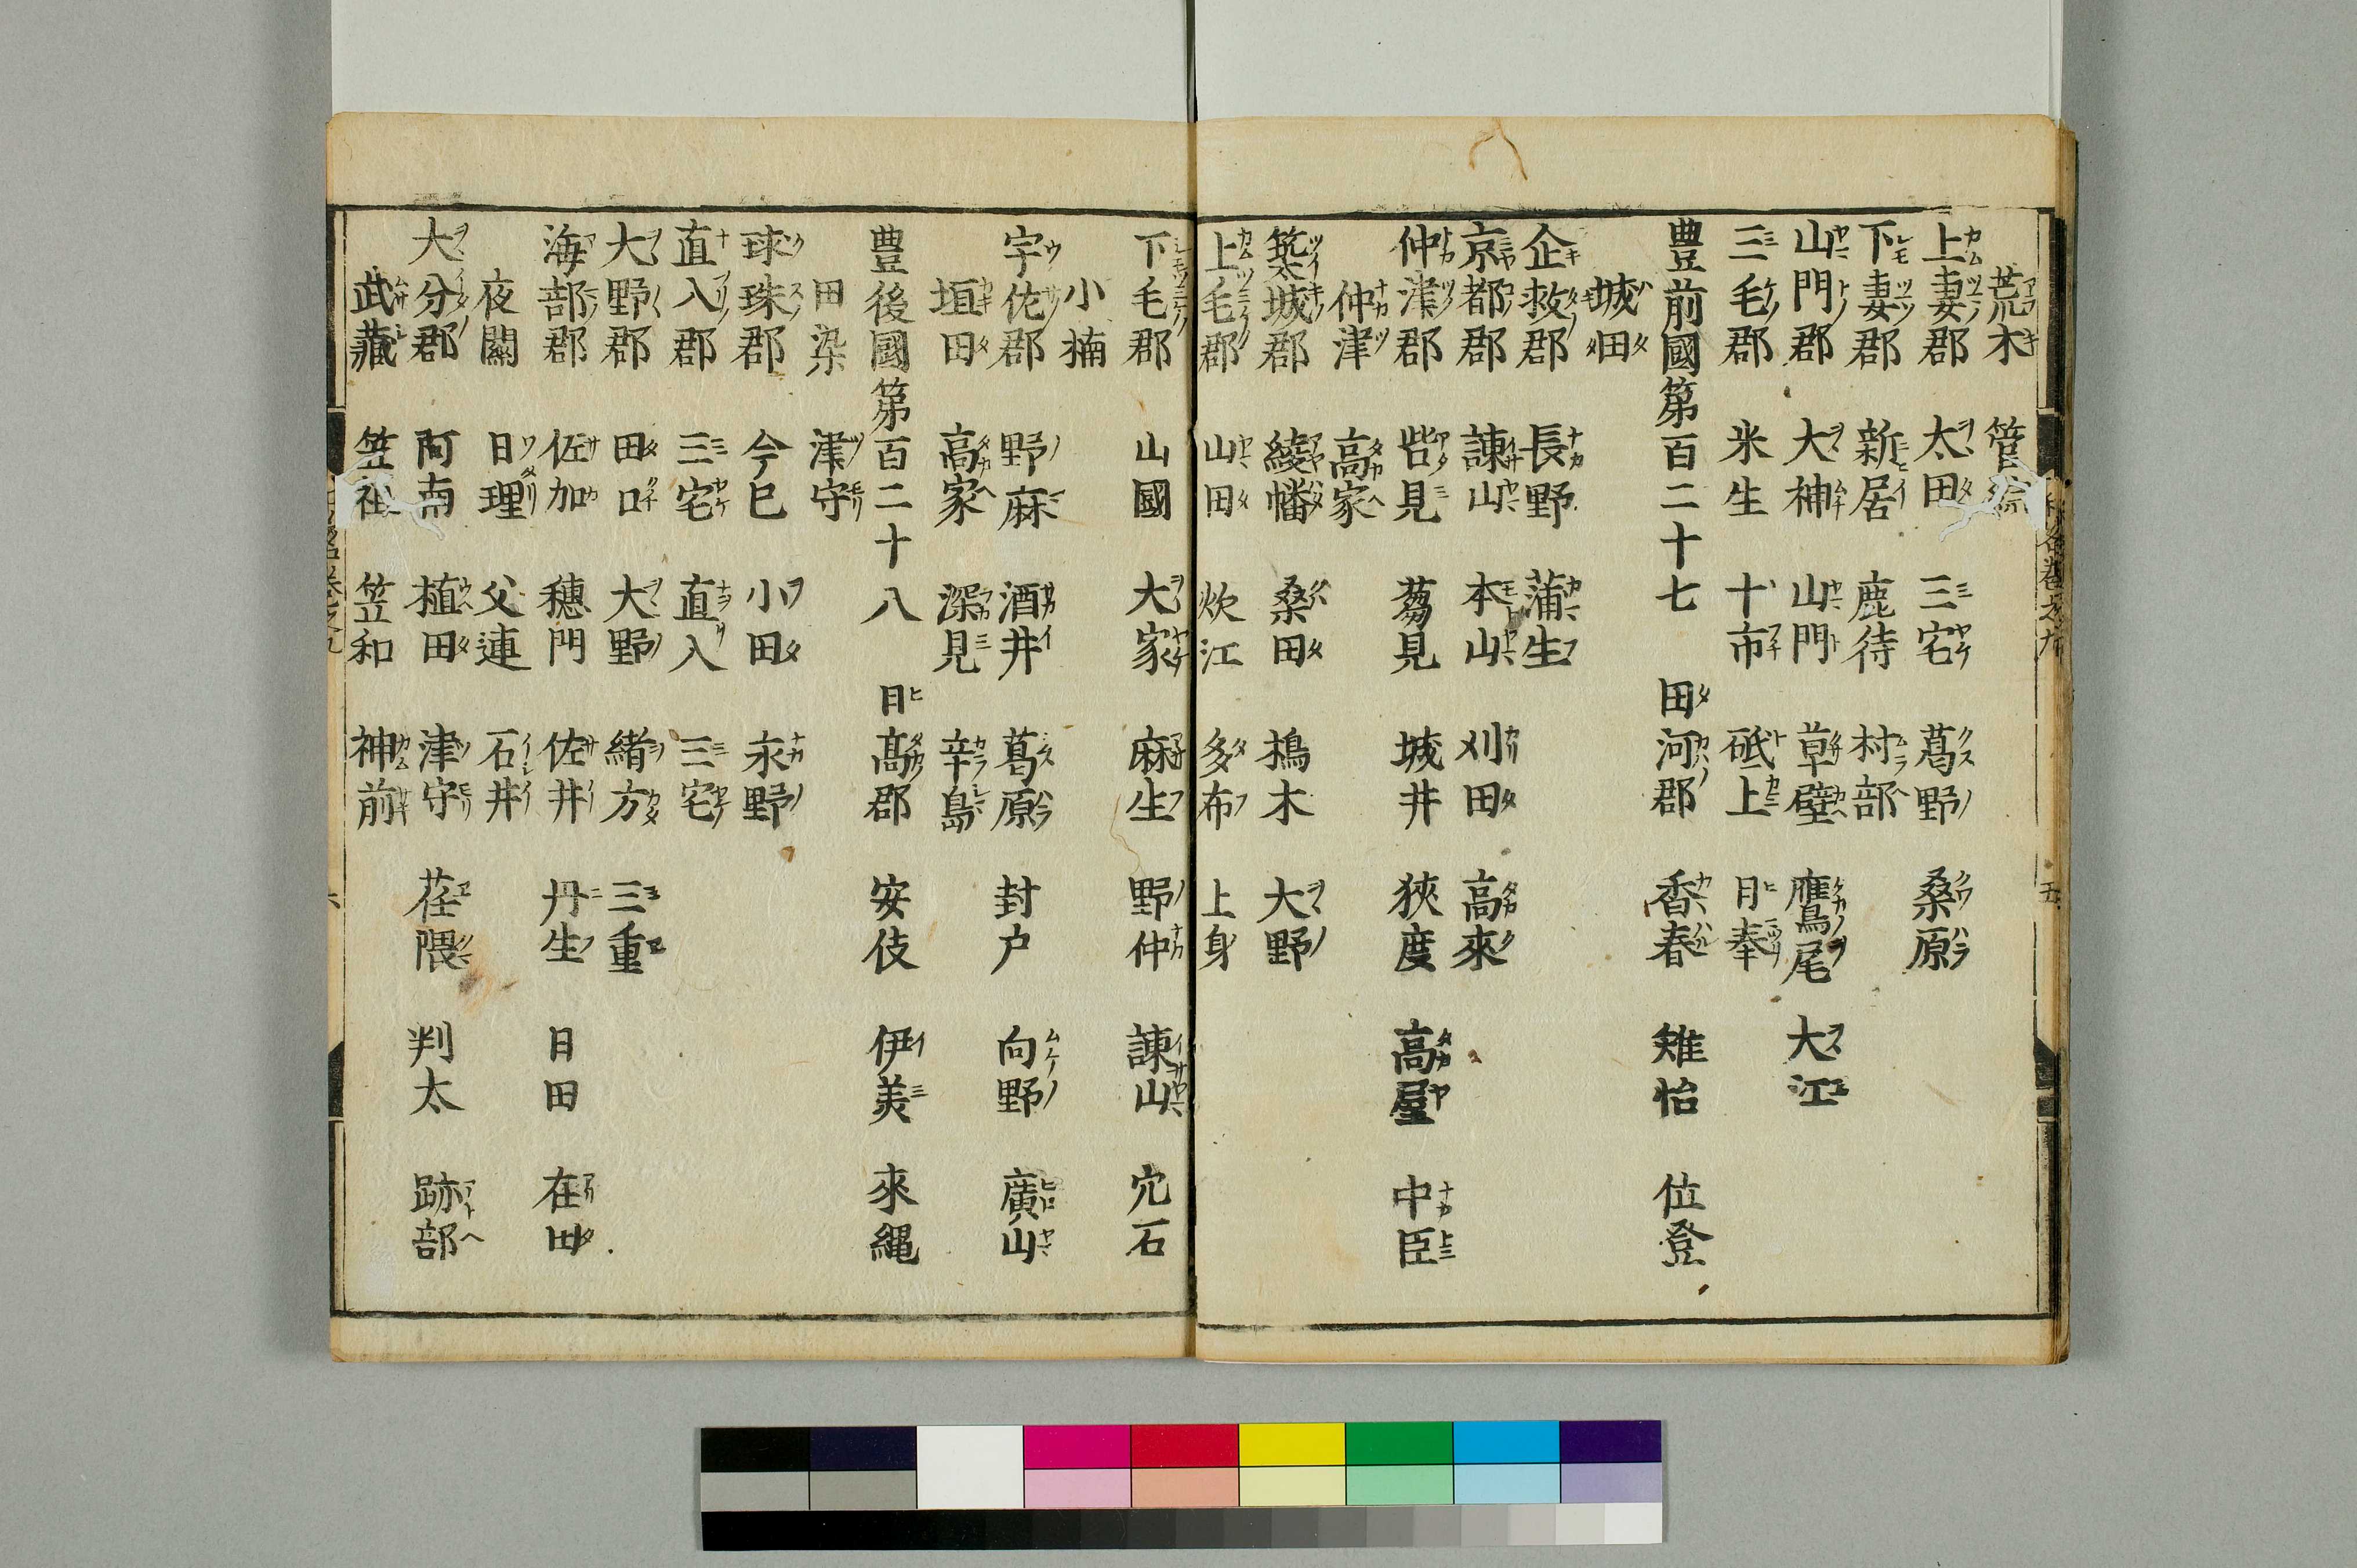 荒木 管綜
上妻郡 太田 三宅 葛野 桑原
下妻郡 新居 鹿待 村部
山門郡 大神 山門 草壁 鷹尾 大江
三毛郡 米生 十市 砥上 日奉
豊前國第百二十七 田河郡 香春 雉怡 位登
城田
企救郡 長野 蒲生
京都郡 諫山 本山 刈田 高來
仲津郡 呰見 蒭見 城井 狹度 高屋 中臣
仲津 高家
築城郡 綾幡 桑田 搗木 大野
上毛郡 山田 炊江 多布 上身
下毛郡 山國 大家 麻生 野仲 諫山 穴石
小楠
宇佐郡 野麻 酒井 葛原 封户 向野 廣山
垣田 高家 深見 辛島
豊後國第百二十八 日髙郡 安伎 伊美 來縄
田染 津守
球珠郡 今巳 小田 永野
直入郡 三宅 直入 三宅
大野郡 田口 大野 緒方 三重
海部郡 佐加 穗門 佐井 丹生 日田 在田
夜關 日理 父連 石井
大分郡 阿南 植田 津守 荏隈 判太 跡部
武藏 笠祖 笠和 神前